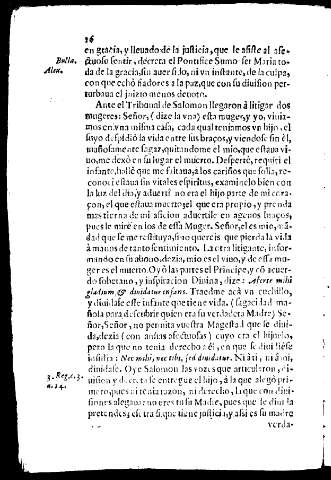 26
Bulla.
Alex.
en gracia, y llevado de la justicia, que le asiste al afe-
ctuoso sentir, decreta el Pontifice Sumo ser Maria to-
da de la gracia, sin aver sido, ni vn instante, de la culpa,
con que echò fiadores a la paz, que con su division per-
turbava el juizio menos devoto.
Ante el Tribunal de Salomon llegaron à litigar dos
mugeres: Señor, (dize la vna) esta muger, y yo, vivia-
mos en vna misma casa, cada qual teniamos vn hijo, el
suyo despidiò la vida entre sus braços, y viendose sin èl,
mañosamente sagaz, quitandome el mio, que estava vi-
vo, me dexò en su lugar el muerto. Desperrè, requiri el
infante, hallè que me faltava, a los cariños que solia, re-
conoci estava sin vitales espiritus, examinelo bien con
la luz del dia, y advertì no era el hijo parte de mi cora-
çon, el que estava muerto; el que era propio, y prenda
mas tierna de mi aficion advertile en agenos braços,
pues le mirè en los de essa Muger. Señor, el es mio, mã-
dad que se me restituya, sino quereis que pierda la vida
à manos de tanto sentimiento. La otra litigante, infor-
mando en su abono, dezia, mio es el vivo, y de essa mu-
ger es el muerto. Oyò las partes el Principe, y cõ acuer-
do soberano, y inspiracion Divina, dize: Aferte mihi
gladium, & dividatur infans. Traedme acà vn cuchillo,
y dividase este infante que tiene vida. (sagacidad ma-
ñosa para descubrir quien era su verdadera Madre) Se-
ñor, Señor, no permita vuestra Magestad que se divi-
da, dezia (con ansias afectuosas) cuyo era el hijuelo,
pero la que no tenia derecho à èl, en que se dividiesse
insistia: Nec mihi, nec tibi, sed dividatur. Ni à ti, ni à mi,
dividase. Oye Salomon las vozes que articularon, di-
3. Reg. c. 3.
n. 24.
vision y decreta se entregue el hijo, à la que alegò pri-
mero, pues ni tenia razon, ni derecho, la que con divi-
siones alegava no era su Madre, pues que le divida
pretende; esotra si que tiene justicia, y assi es su madre
verda-